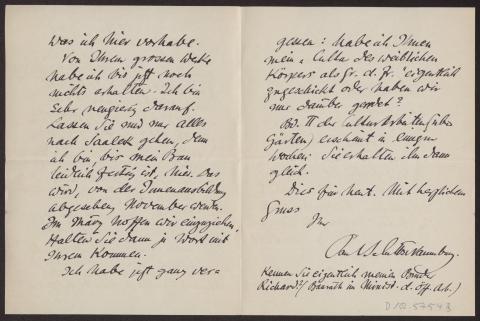 was ich hier vorhabe.
Von Ihrem grossen Werke
habe ich bis jetzt noch
nichts erhalten. Ich bin
sehr neugierig darauf.
Lassen Sie mir nur alles
nach Saaleck gehen, denn
ich bin, bis mein Bau
leidlich fertig ist, hier. Das
wird, von der Innenausbildung
abgesehen November werden.
Im März hoffen wir einzuziehen.
Halten Sie dann ja Wort mit
Ihrem Kommen.
Ich habe jetzt ganz ver=
gessen: habe ich Ihnen
mein "Cultur des weiblichen
Körpers als Gr. d. Fr." eigentlich
zugeschickt oder haben wir
nur darüber geredet?
Bd. II der Culturarbeiten (über
Gärten) erscheint in einigen
Wochen; Sie erhalten ihn dann
gleich.
Dies für heut. Mit herzlichem
Gruss
Ihr
Paul Schultze Naumburg.
Kennen Sie eigentlich meinen Bruder
Richard? (Baurath im Minist. d. öff. Arb.)
D 1Q. 57543